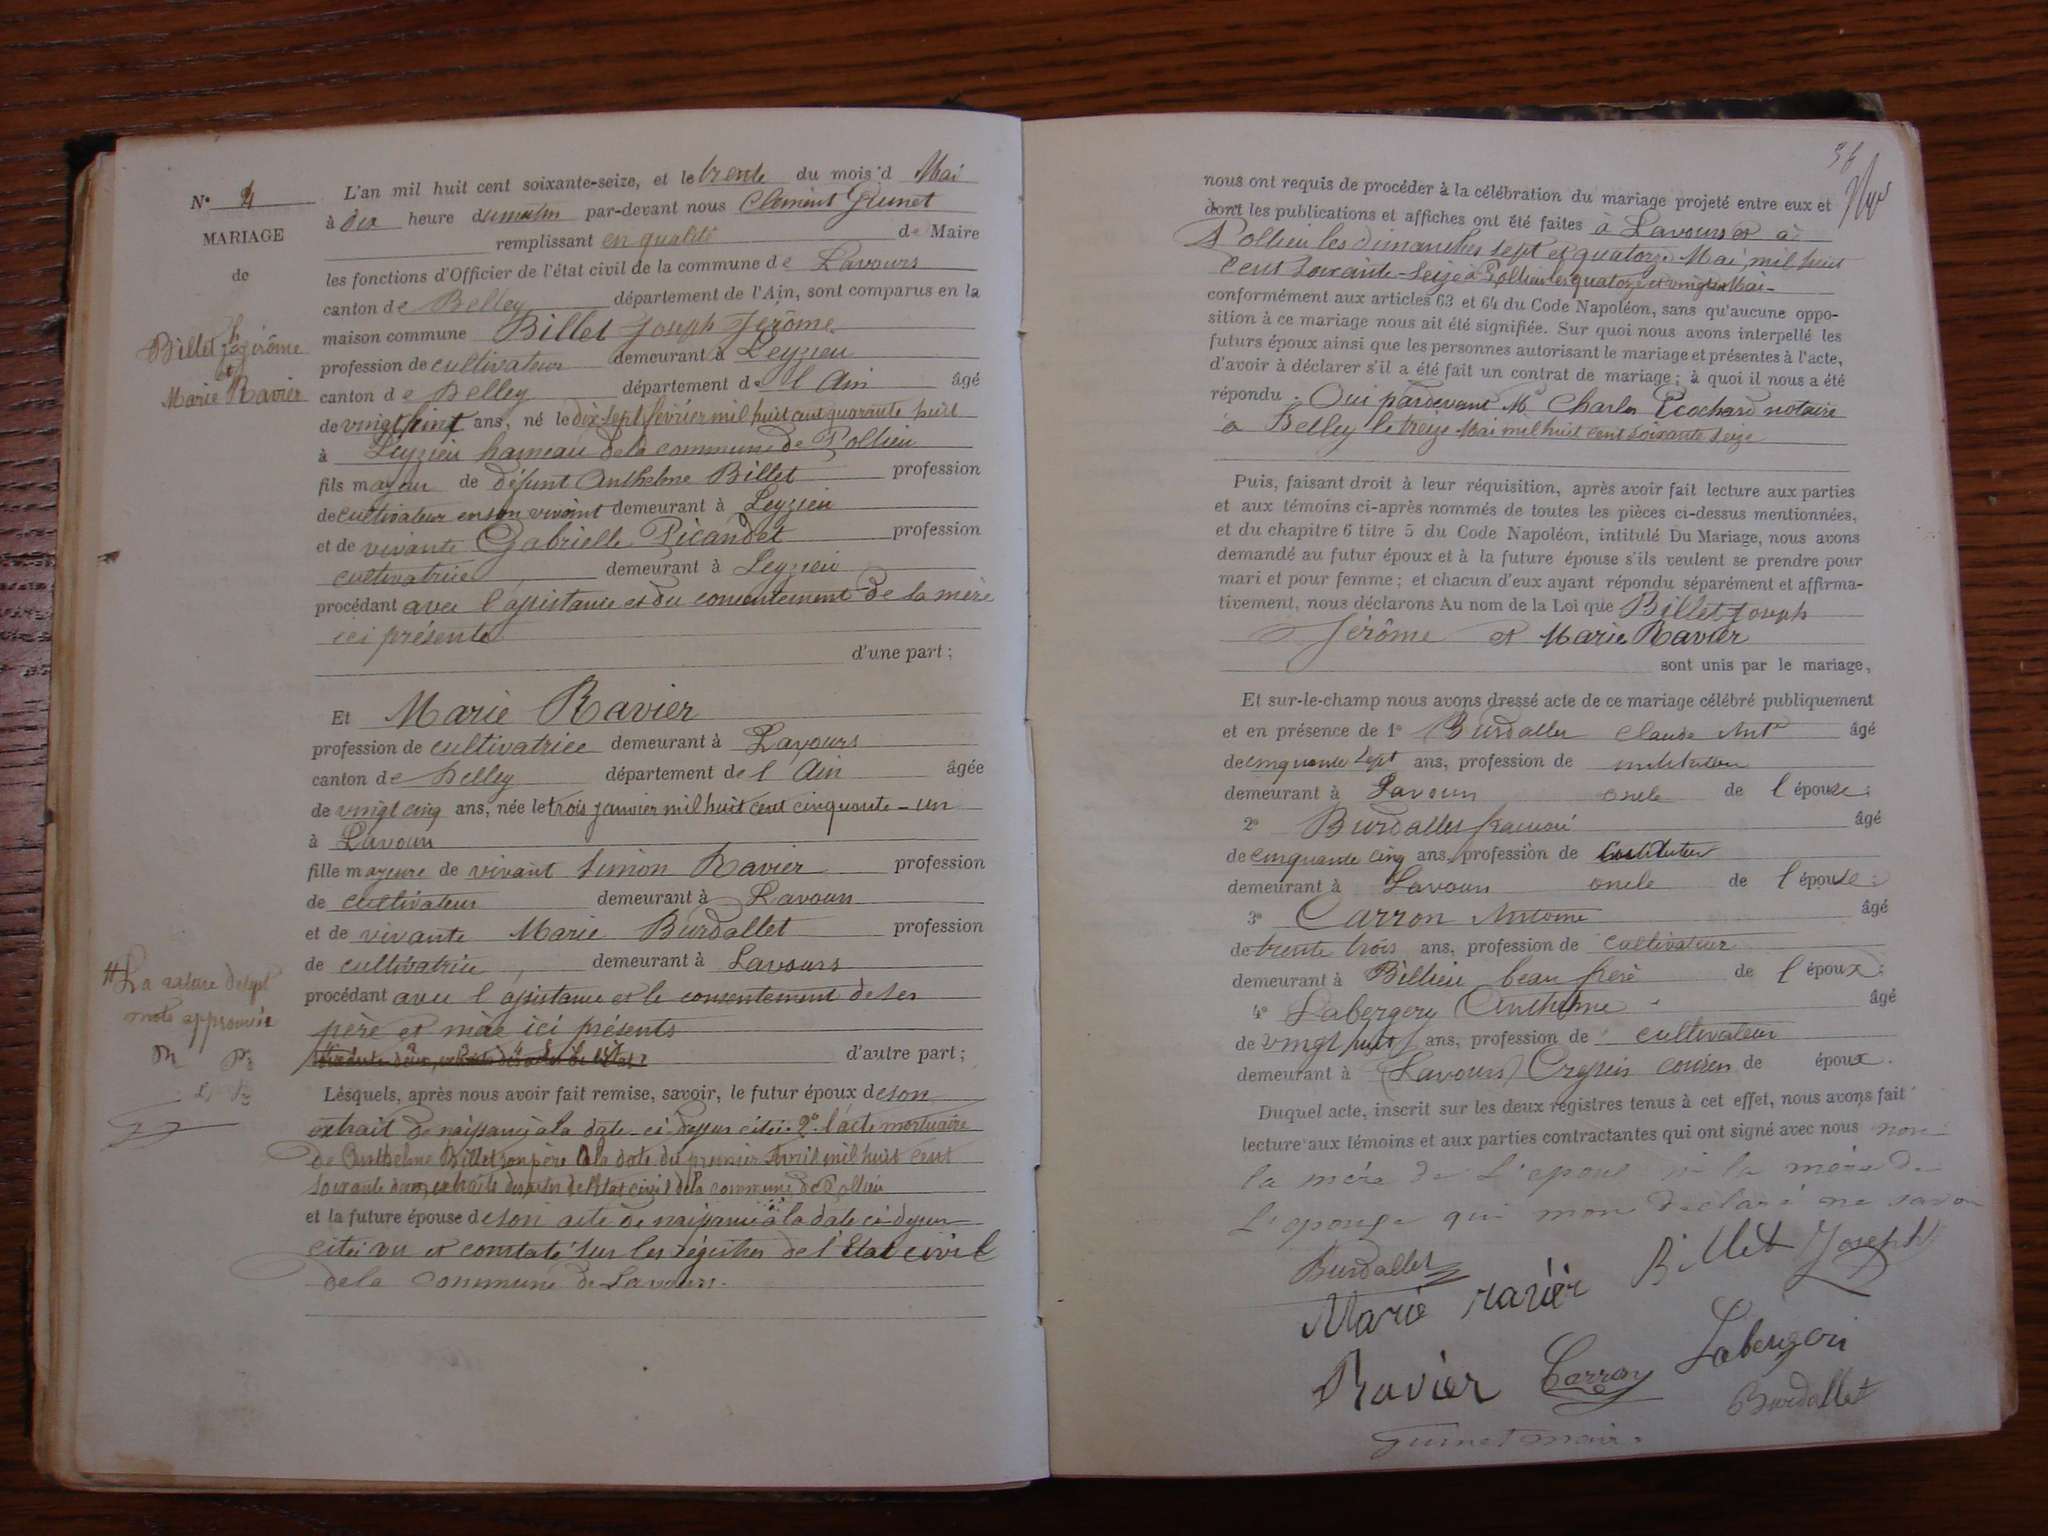 N° 4
MARIAGE
de
Billet Jh Jérôme
et
Marie Ravier
L'an mil huit cent soixante-seize, et le trente du mois d Mai
à dix heure du matin par-devant nous Clément Guinet
remplissant en qualité de Maire
les fonctions d'Officier de l'état civil de la commune de Lavours
canton de Belley département de l'Ain, sont comparus en la
maison commune Billet Joseph Jérôme
profession de cultivateur demeurant à Leyzieu
canton de Belley département de l'Ain âgé
de vingt huit ans, né le dix sept février mil huit cent quarante huit
à Leyzieu hameau de la commune de Pollieu
fils majeur de défunt Anthelme Billet profession
de cultivateur en son vivant demeurant à Leyzieu
et de vivante Gabrielle Picandet profession
cultivatrice demeurant à Leyzieu
procédant avec l'assistance et du consentement de la mère
ici présente
d'une part;
Et Marie Ravier
profession de cultivatrice demeurant à Lavours
canton de Belley département de l'Ain âgée
de vingt cinq ans, née le trois janvier mil huit cent cinquante-un
à Lavours
fille majeure de vivant Simon Ravier profession
de cultivateur demeurant à Lavours
et de vivante Marie Burdallet profession
de cultivatrice demeurant à Lavours
procédant avec l'assistance et le consentement de ses
père et mère ici présents
d'autre part;
# La rature de sept
mots approuvée
Lesquels, après nous avoir fait remise, savoir, le futur époux de son
extrait de naissance à la date ci dessus citée 2° l'acte mortuaire
de Anthelme Billet son père à la date du premier Avril mil huit cent
soixante deux, extraits des actes de l'Etat civil de la commune de Pollieu
et la future épouse de son acte de naissance à la date ci dessus
citée vu et constaté sur les régistres de l'Etat civil
de la commune de Lavours.
36
nous ont requis de procéder à la célébration du mariage projeté entre eux et
dont les publications et affiches ont été faites à Lavours et à
Pollieu les dimanches sept et quatorze Mai mil huit
cent soixante-seize à Pollieu les quatorze et vingt un Mai
conformément aux articles 63 et 64 du Code Napoléon, sans qu'aucune oppo-
sition à ce mariage nous ait été signifiée. Sur quoi nous avons interpellé les
futurs époux ainsi que les personnes autorisant le mariage et présentes à l'acte,
d'avoir à déclarer s'il a été fait un contrat de mariage; à quoi il nous a été
répondu: Oui pardevant Me Charles Ecochard notaire
à Belley le treize Mai mil huit cent soixante seize
Puis, faisant droit à leur réquisition, après avoir fait lecture aux parties
et aux témoins ci-après nommés de toutes les pièces ci-dessus mentionnées,
et du chapitre 6 titre 5 du Code Napoléon, intitulé Du Mariage, nous avons
demandé au futur époux et à la future épouse s'ils veulent se prendre pour
mari et pour femme; et chacun d'eux ayant répondu séparément et affirma-
tivement, nous déclarons Au nom de la Loi que Billet Joseph
Jérôme et Marie Ravier
sont unis par le mariage,
Et sur-le-champ nous avons dressé acte de ce mariage célébré publiquement
et en présence de 1° Burdallet Claude Ant° âgé
de cinquante sept ans, profession de instituteur
demeurant à Lavours oncle de l'épouse;
2° Burdallet françois âgé
de cinquante cinq ans, profession de instituteur
demeurant à Lavours oncle de l'épouse;
3° Carron Antoine âgé
de trente trois ans, profession de cultivateur
demeurant à Billieu beau frère de l'époux;
4° Labergery Anthelme âgé
de vingt huit ans, profession de cultivateur
demeurant à Lavours Cousin de époux.
Duquel acte, inscrit sur les deux registres tenus à cet effet, nous avons fait
lecture aux témoins et aux parties contractantes qui ont signé avec nous non
la mère de l'epoux ni la mère de
l'epouse qui mon declaré ne savoir
Burdallet Billet Joseph
Marie ravier
Ravier Carron Labergeri
Burdallet
Guinet maire